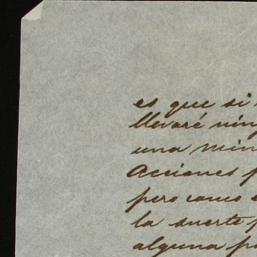 es que si
llevaré nin
una min
Acciones p
pero como
la suerte p
alguna pa